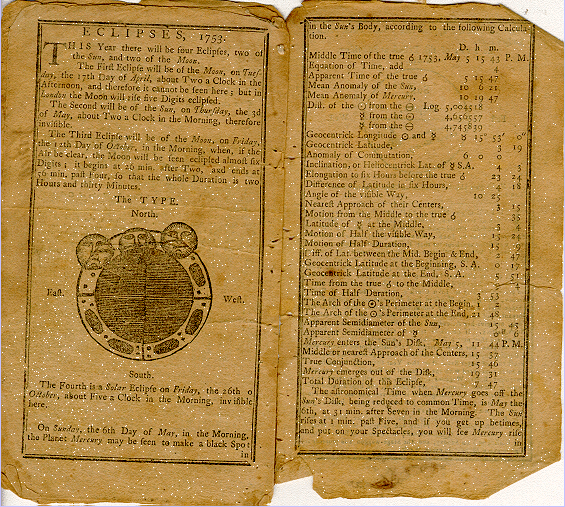 ECLIPSES, 1753.
THIS Year there will be four Eclipses, two of
the Sun, and two of the Moon.
The First Eclipse will be of the Moon, on Tues-
day, the 17th Day of April, about Two a Clock in the
Afternoon, and therefore it cannot be seen here; but in
London the Moon will rise five Digits eclipsed.
The Second will be of the Sun, on Thursday, the 3d
of May, about Two a Clock in the Morning, therefore
invisible.
The Third Eclipse will be of the Moon, on Friday,
the 12th Day of October, in the Morning, when, if the
Air be clear, the Moon will be seen eclipsed almost six
Digits; it begins at 26 min. after Two, and ends at
56 min. past Four, so that the whole Duration is two
Hours and thirty Minutes.
The TYPE.
North.
East.
West.
South.
The Fourth is a Solar Eclipse on Friday, the 26th o
October, about Five a Clock in the Morning, invisible
here.
On Sunday, the 6th Day of May, in the Morning,
the Planet Mercury may be seen to make a black Spot
in
in the Sun's Body, according to the following Calcula-
tion.
D. h. m.
Middle Time of the true ☌ 1753, May 5 15 43 P. M.
Equation of Time, add 4
Apparent Time of the true ☌ 5 15 47
Mean Anomaly of the Sun, 10 6 21
Mean Anomaly of Mercury, 10 19 47
Dist. of the ☉ from the ⊖ Log 5,004518
☿ from the ☉ 4,656557
☿ from the ⊖ 4,745839
Geocentrick Longitude ☉ and ☿ ♉ 15° 53′ 0″
Geocentrick Latitude, 3 19
Anomaly of Commutation, 6 0 0
Inclination, or Heliocentrick Lat. of ☿ S.A. 4 3
Elongation to six Hours before the true ☌ 23 24
Difference of Latitude in six Hours, 4 18
Angle of the visible Way, 10 25
Nearest Approach of their Centers, 3 15
Motion from the Middle to the true ☌ 35
Latitude of ☿ at the Middle, 3 24
Motion of Half the visible Way, 15 24
Motion of Half Duration, 15
Diff. of Lat. between the Mid. Begin. & End, 2 47
Geocentrick Latitude at the Beginning, S. A. 0 17
Geocentrick Latitude at the End, S. A. 5 51
Time from the true ☌ to the Middle,
Time of Half Duration, 3 53
The Arch of the ☉'s Perimeter at the Begin. 1 2
The Arch of the ☉'s Perimeter at the End, 21 48
Apparent Semidiameter of the Sun, 15 45
Apparent Semidiameter of ☿ 0 6
Mercury enters the Sun's Disk, May 5, 11 44 P. M.
Middle or nearest Approach of the Centers, 15 37
True Conjunction, 15 46
Mercury emerges out of the Disk, 19 31
Total Duration of this Eclipse, 7 47
The astronomical Time when Mercury goes off the
Sun's Disk, being reduced to common Time, is May the
6th, at 31 min. after Seven in the Morning. The Sun
rises at 1 min. past Five, and if you get up betimes,
and put on your Spectacles, you will see Mercury rise
in